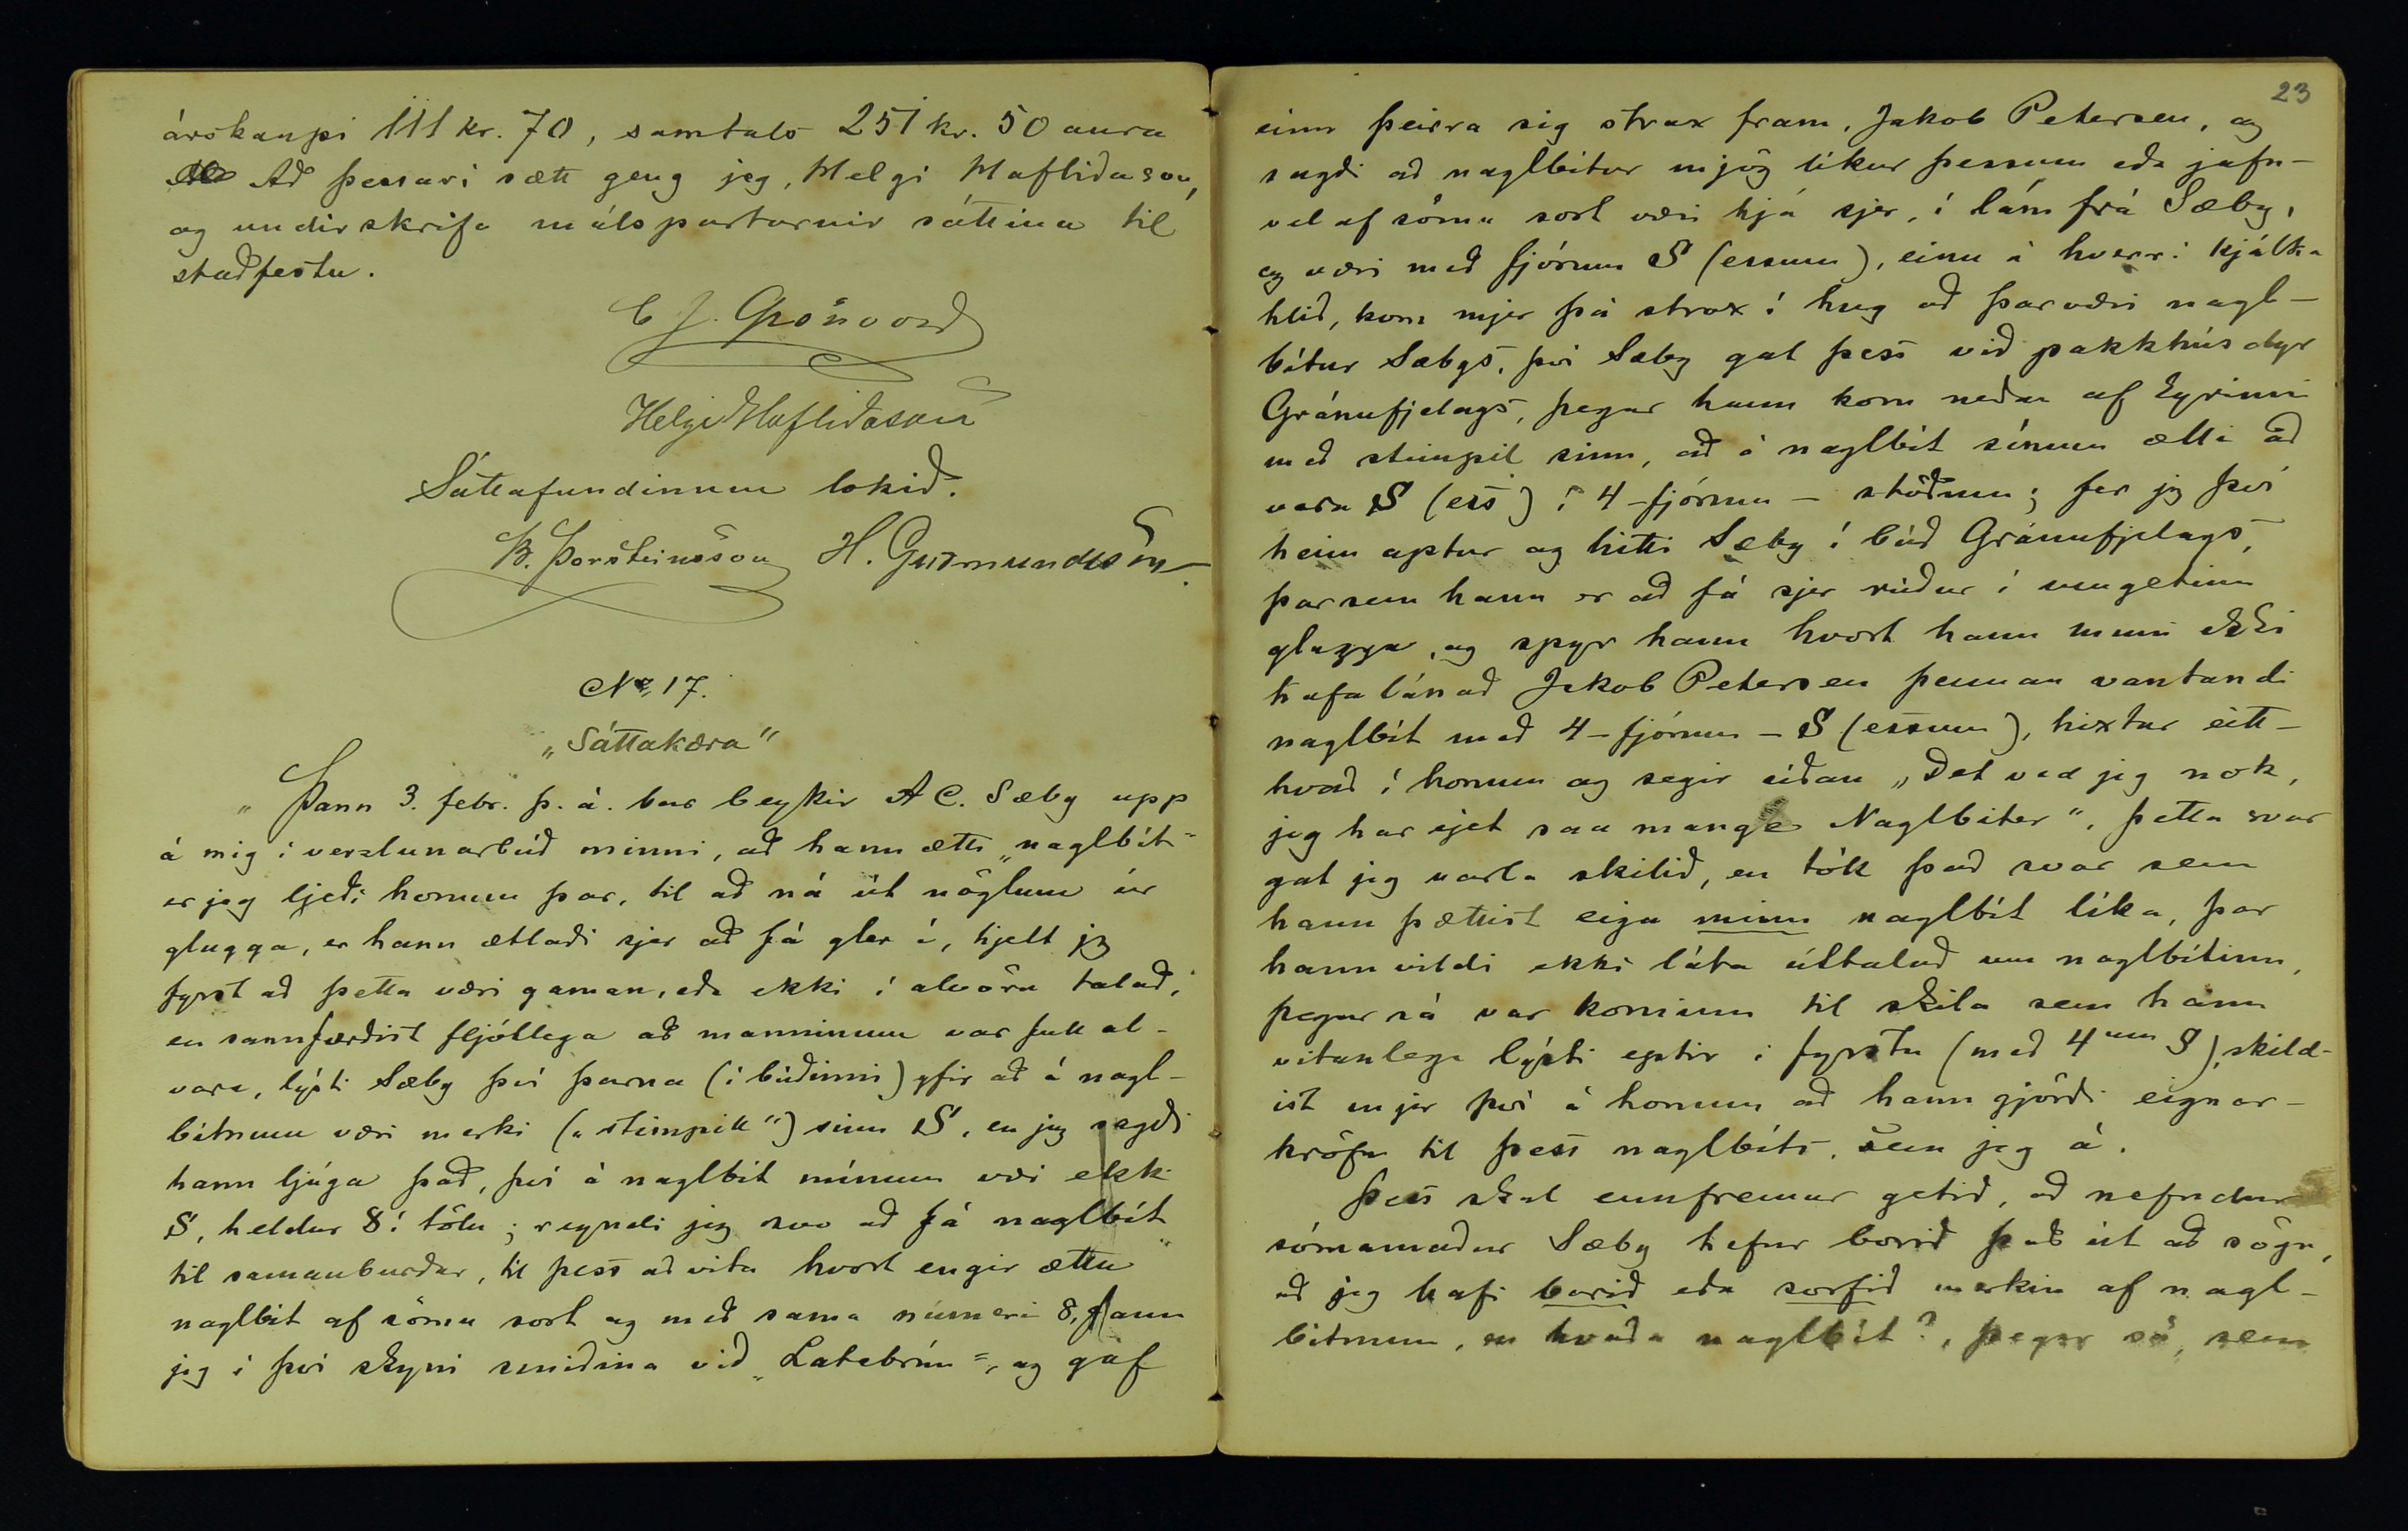 árskaupi 111 kr. 70, samtals 251 kr. 50 aura
Að þessari sætt geng jeg, Helgi Hafliðason,
og undirskrifa málspartarnir sáttina til
staðfestu.
C J. Grönvold
Helgi Hafliðason
Sáttafundinum lokið.
B. Þorsteinsson H. Guðmundsson
No. 17.
„Sáttakæra"
„Þann 3. febr. þ. á. bar beykir A C. Sæby upp
á mig í verzlunarbúð minni, að hann ætti „naglbít"
er jeg ljeði honum þar, til að ná út nöglum úr
glugga, er hann ætlaði sjer að fá gler í, hjelt jg
fyrst að þetta væri gaman, eða ekki í alvöru talað,
en sannfærðist fljótlega að manninum var full al-
vara, lýsti Sæby því þarna (í búðinni) yfir að á nagl-
bítnum væri merki („stimpill") sinn S, en jeg sagði
hann ljúga það, því á naglbít mínum væri ekki
S, heldur 8 í tölu; reyndi jeg svo að fá naglbít
til samanburðar, til þess að vita hvort engir ættu
naglbít af sömu sort og með sama númeri 8, fann
jeg í því skyni smiðina við „Latabrún", og gaf
23
einn þeirra sig strax fram, Jakob Petersen, og
sagði að naglbítur mjög líkur þessum eða jafn-
vel af sömu sort væri hjá sjer, í láni frá Sæby,
og væri með fjórum S (essum), einu á hverri kjálka
hlið, kom mjer þá strax í hug að þar væri nagl-
bítur Sæbys, því Sæby gat þess við pakkhúsdyr
Gránufjelags, þegar hann kom neðan af Eyrinni
með stimpil sinn, að á naglbít sínum ætti að
vera S (ess) í 4-fjórum - stöðum; fer jg því
heim aptur og hitti Sæby í búð Gránufjelags,
þar sem hann er að fá sjer rúður í umgetinn
glugga, og spyr hann hvort hann muni ekki
hafa lánað Jakob Petersen þennan vantandi
naglbít með 4-fjórum - S (essum), hixtar eitt-
hvað í honum og segir síðan „Det ved jeg nok,
jeg har ejet saa mange Naglbiter", þetta svar
gat jeg varla skilið, en tók það svar sem
hann þættist eiga minn naglbít líka, þar
hann vildi ekki láta úttalað um naglbítinn,
þegar sá var kominn til skila sem hann
vitanlega lýsti eptir í fyrstu (með 4um S), skild-
ist mjer því á honum að hann gjörði eignar-
kröfu til þess naglbíts, sem jeg á.
Þess skal ennfremur getið, að nefndur
sómamaður Sæby hefur borið það út að sögn,
að jeg hafi barið eða sorfið merkin af nagl-
bítnum, en hvaða naglbít?, þegar sá, sem